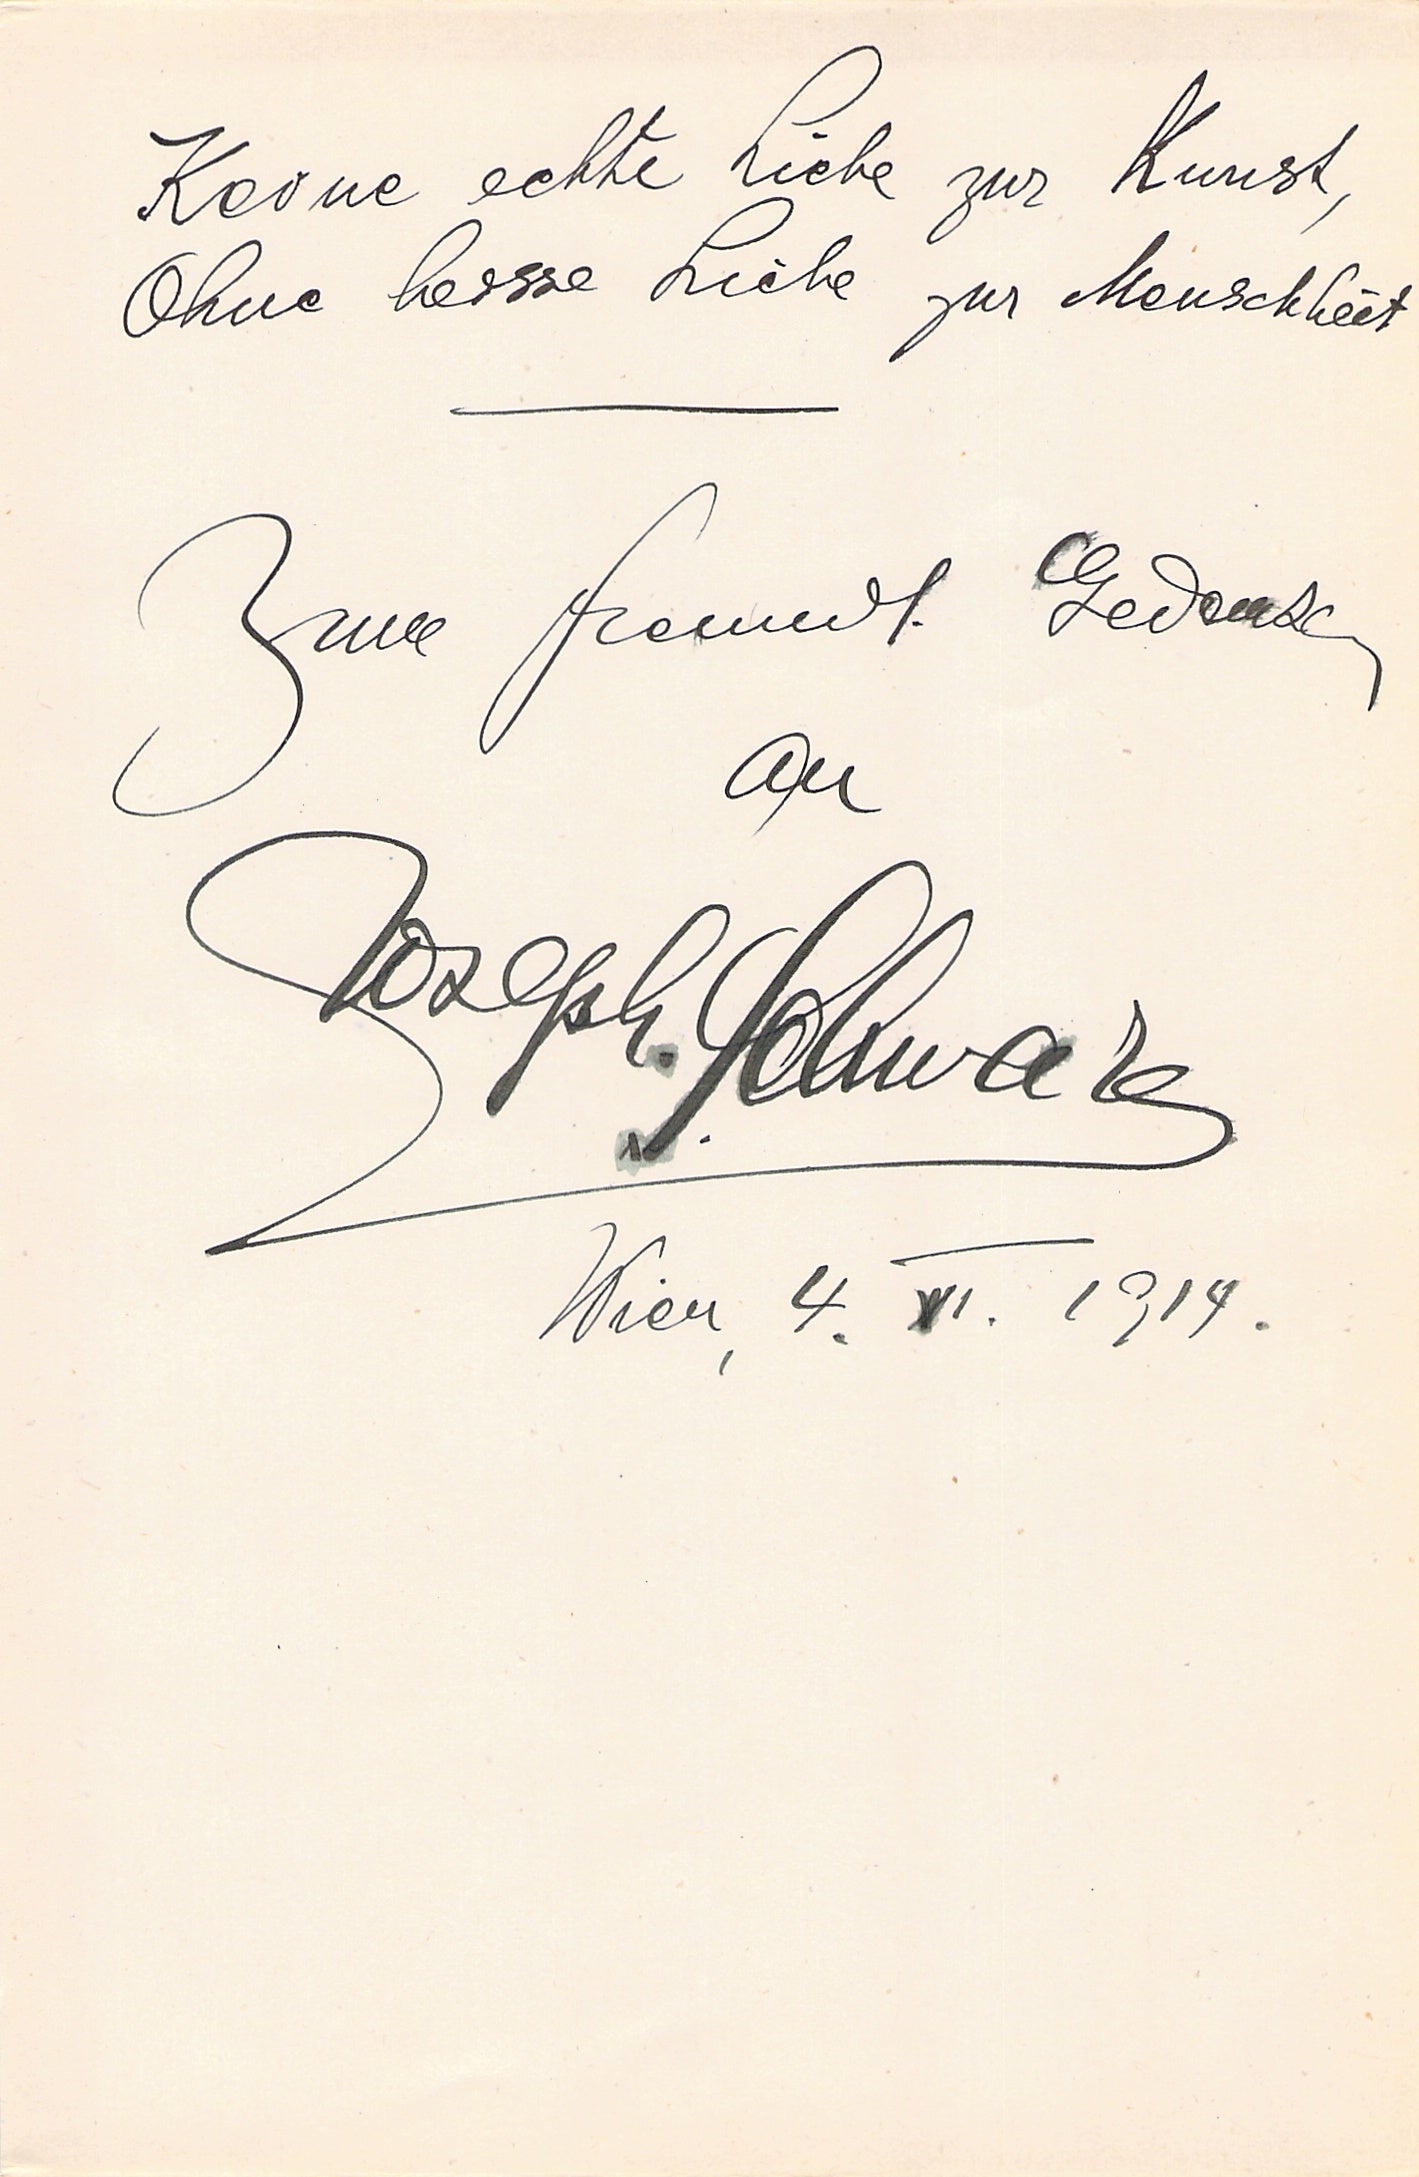 Keine echte Liebe zur Kunst,
Ohne heisse Liebe zur Menschheit
Zum freundl. Gedenken
an
Joseph Schwarz
Wien, 4. VI. 1914.